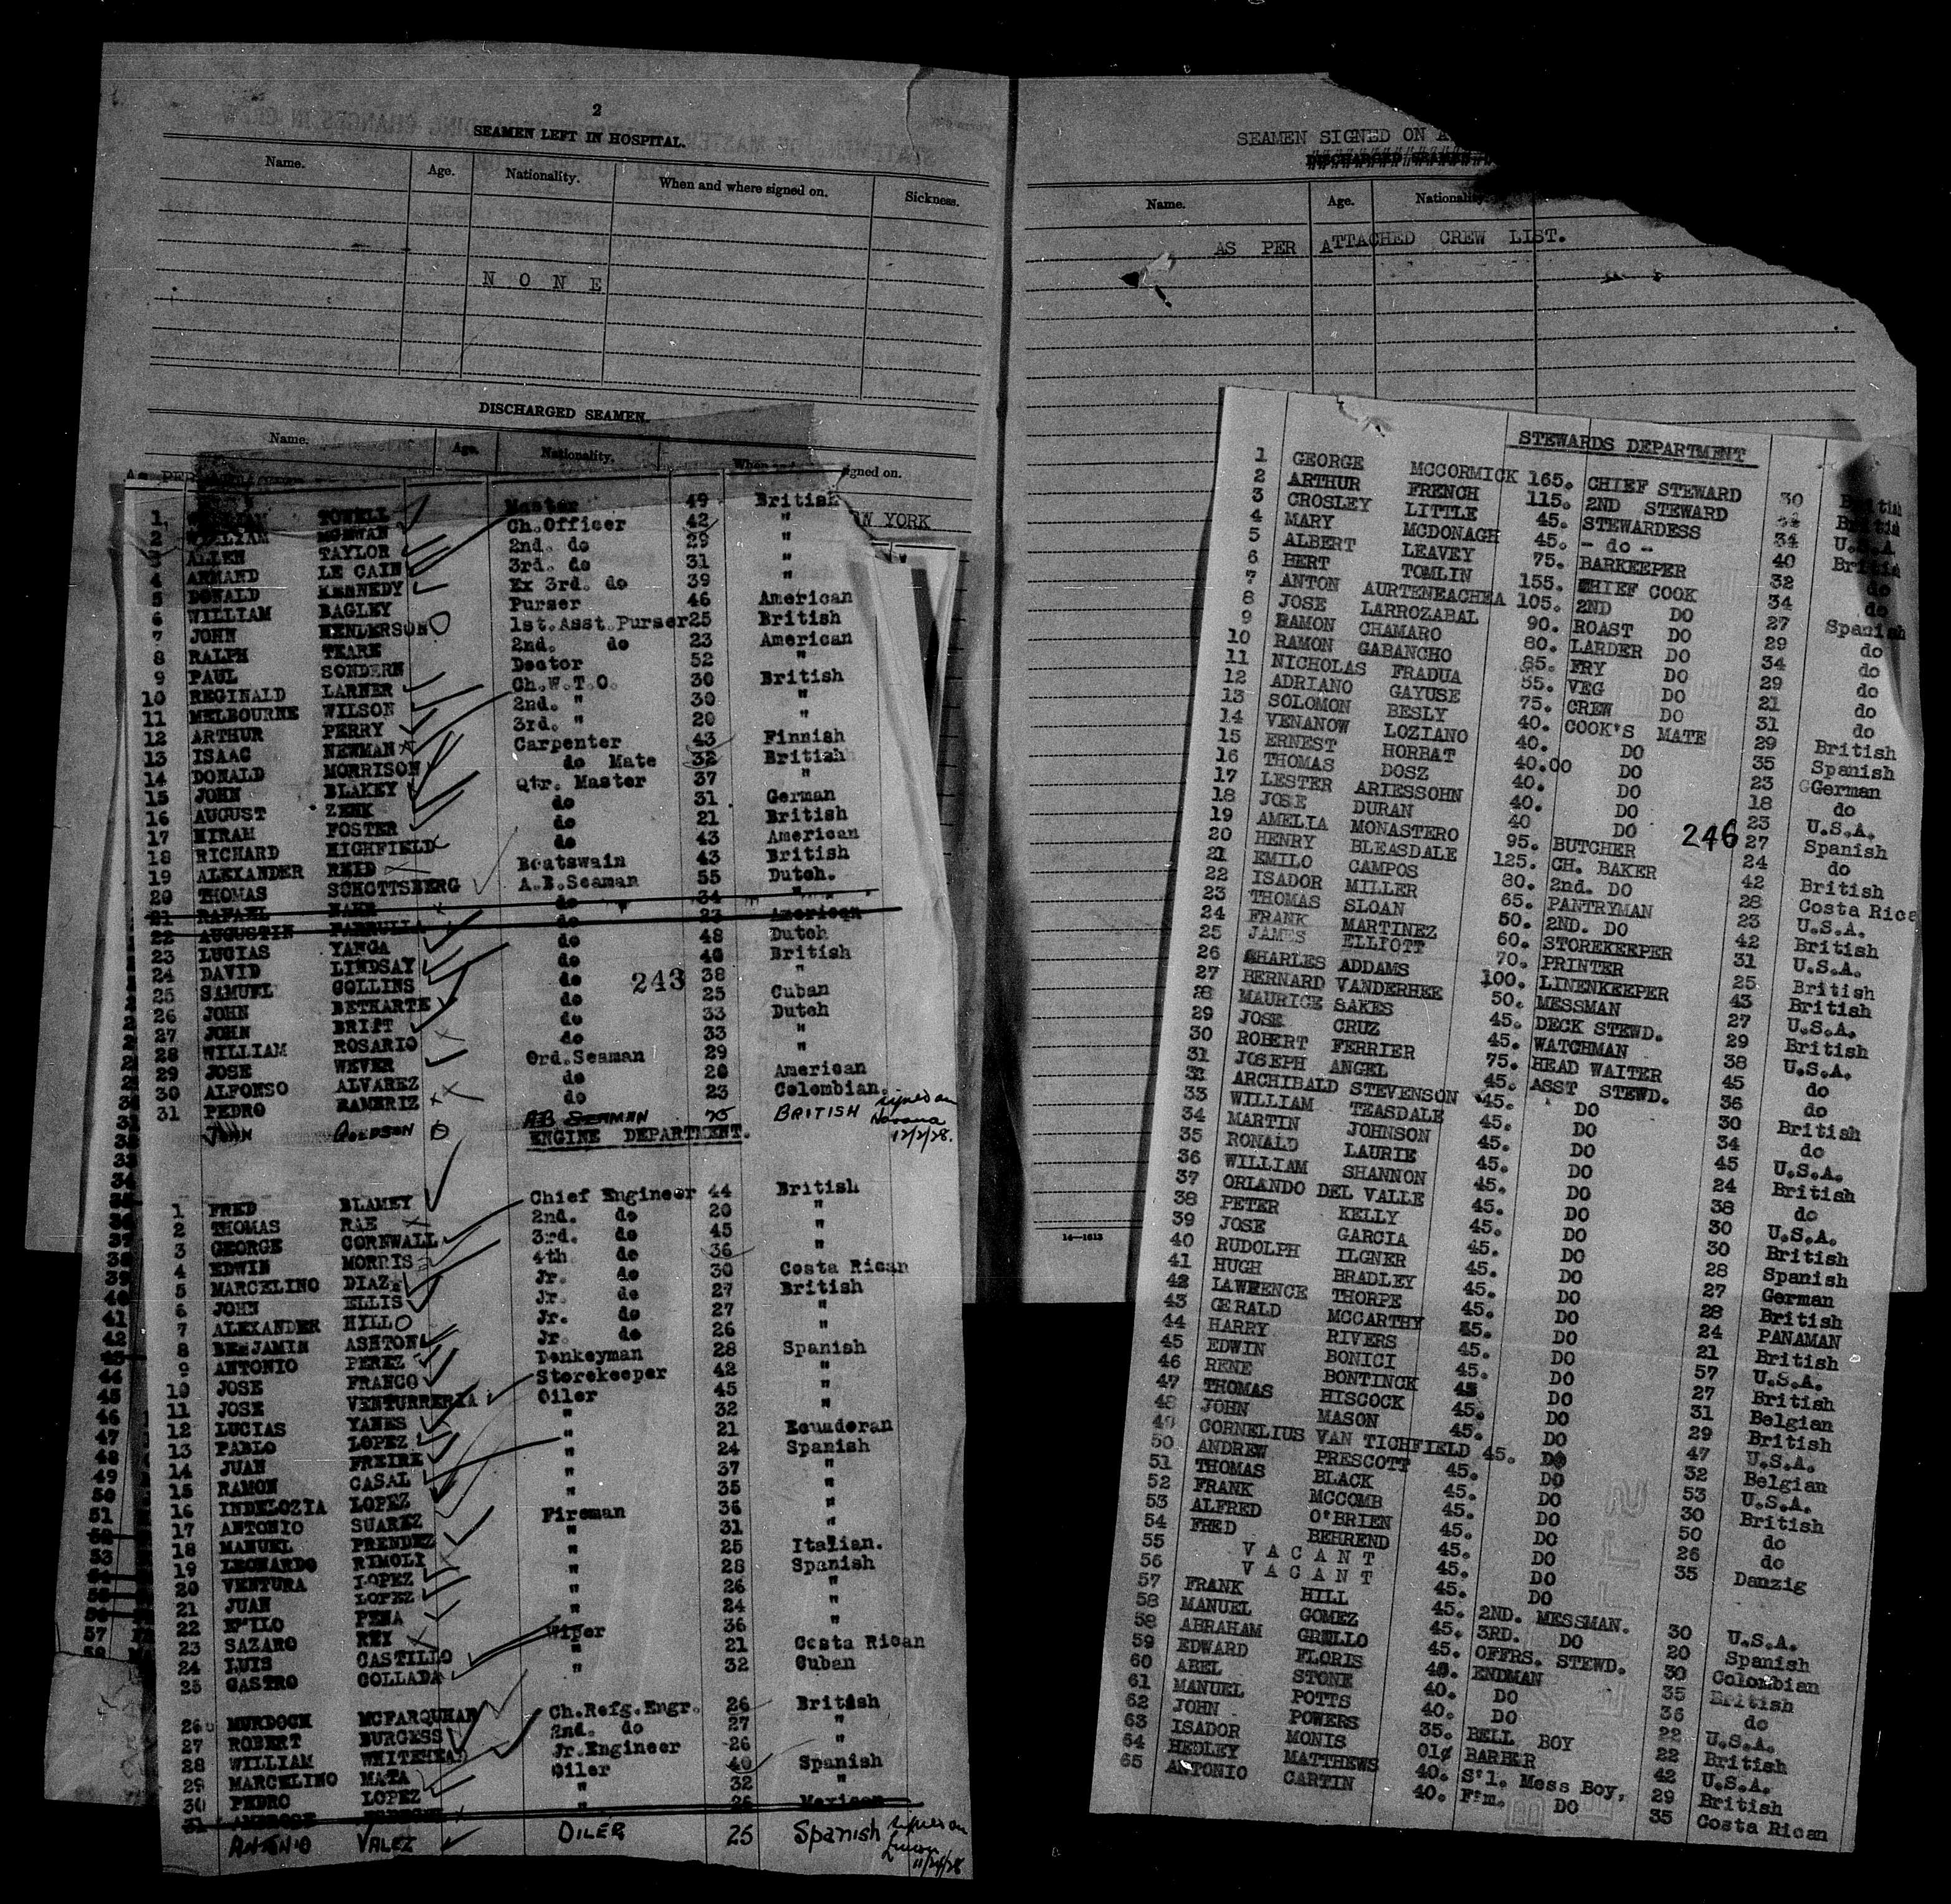 2
SEAMEN LEFT IN HOSPITAL.
Name. Age. Nationality. When and where signed on. Sickness.
N O N E
DISCHARGED SEAMEN.
Name. Age. Nationality. When and signed on.
As PER
YORK
1 WILLIAM TOWELL Master 49 British
2 WILLIAM MCEWAN Ch.Officer 42 "
3 ALLEN TAYLOR 2nd. do 29 "
4 ARMAND LE CAIN 3rd. do 31 "
5 DONALD KENNEDY Ex 3rd. do 39 "
6 WILLIAM BAGLEY Purser 46 American
7 JOHN HENDERSON 1st.Asst.Purser 25 British
8 RALPH TEARE 2nd. do 23 American
9 PAUL SONDERN Doctor 52 "
10 REGINALD LARNER Ch.W.T.O. 30 British
11 MELBOURNE WILSON 2nd. " 30 "
12 ARTHUR PERRY 3rd. " 20 "
13 ISAAC NEWMAN Carpenter 43 Finnish
14 DONALD MORRISON do Mate 32 British
15 JOHN BLAKEY Qtr. Master 37 "
16 AUGUST ZENK do 31 German
17 HIRAH FOSTER do 21 British
18 RICHARD HIGHFIELD do 43 American
19 ALEXANDER REID Boatswain 43 British
20 THOMAS SCHOTTSBERG A.B.Seaman 55 Dutch.
21 RAFAEL do 34 "
22 AUGUSTIN FARRULLA do 23 American
23 LUCIAS YANGA do 48 Dutch
24 DAVID LINDSAY do 40 British
25 SAMUEL COLLINS do 38 "
243
26 JOHN BETHARTE do 25 Cuban
27 JOHN BRIFT do 33 Dutch
28 WILLIAM ROSARIO do 33 "
29 JOSE WEVER Ord.Seaman 29 "
30 ALFONSO ALVAREZ do 20 American
31 PEDRO RAMERIZ do 23 Colombian.
JOHN AB SEAMAN 25 BRITISH signed on Havana 12/2/28.
ENGINE DEPARTMENT.
1 FRED BLAMEY Chief Engineer 44 British
2 THOMAS RAE 2nd. do 20 "
3 GEORGE CORNWALL 3rd. do 45 "
4 EDWIN MORRIS 4th do 36 "
5 MARCELINO DIAZ Jr. do 30 Costa Rican
6 JOHN ELLIS Jr. do 27 British
7 ALEXANDER HILL Jr. do 27 "
8 BENJAMIN ASHTON Jr. do 26 "
9 ANTONIO PEREZ Donkeyman 28 Spanish
10 JOSE FRANCO Storekeeper 42 "
11 JOSE VENTURRERIA Oiler 45 "
12 LUCIAS YANES " 32 "
13 PABLO LOPEZ " 21 Ecuaderan
14 JUAN FREIRE " 24 Spanish
15 RAMON CASAL " 37 "
16 INDELOZIA LOPEZ " 35 "
17 ANTONIO SUAREZ Fireman 36 "
18 MANUEL PRENDEZ " 31 "
19 LEONARDO RIMOLI " 25 Italian.
20 VENTURA LOPEZ " 28 Spanish
21 JUAN LOPEZ " 26 "
22 EMILO PENA " 24 "
23 SAZARO REY Wiper 36 "
24 LUIS CASTILLO " 21 Costa Rican
25 CASTRO COLLADA " 32 Cuban
26 MURDOCH MCFARQUHAR Ch.Refg.Engr. 26 British
27 ROBERT BURGESS 2nd. do 27 "
28 WILLIAM WHITEHEAD Jr.Engineer 26 "
29 MARCELINO MATA Oiler 40 Spanish
30 PEDRO LOPEZ " 32 "
31 AMBROSE " 26 Mexican
ANTONIO VALEZ OILER 25 Spanish signed on 11/24/28
SEAMEN SIGNED ON A
DISCHARGED SEAMEN
Name. Age. Nationality.
AS PER ATTACHED CREW LIST.
14—1613
STEWARDS DEPARTMENT
1 GEORGE MCCORMICK 165. CHIEF STEWARD 30 British
2 ARTHUR FRENCH 115. 2ND STEWARD 34 British
3 CROSLEY LITTLE 45. STEWARDESS 34 U.S.A
4 MARY MCDONAGH 45. - do - 40 British
5 ALBERT LEAVEY 75. BARKEEPER 32 do
6 BERT TOMLIN 155. CHIEF COOK 34 do
7 ANTON AURTENEACHEA 105. 2ND DO 27 Spanish
8 JOSE LARROZABAL 90. ROAST DO 29 do
9 RAMON CHAMARO 80. LARDER DO 34 do
10 RAMON GABANCHO 85. FRY DO 29 do
11 NICHOLAS FRADUA 55. VEG DO 21 do
12 ADRIANO GAYUSE 75. CREW DO 31 do
13 SOLOMON BESLY 40. COOK'S MATE 29 British
14 VENANOW LOZIANO 40. DO 35 Spanish
15 ERNEST HORRAT 40.00 DO 23 German
16 THOMAS DOSZ 40. DO 18 do
17 LESTER ARIESSOHN 40. DO 23 U.S.A.
18 JOSE DURAN 40 DO 27 Spanish
246
19 AMELIA MONASTERO 95. BUTCHER 24 do
20 HENRY BLEASDALE 125. CH. BAKER 42 British
21 EMILO CAMPOS 80. 2nd. DO 28 Costa Rica
22 ISADOR MILLER 65. PANTRYMAN 23 U.S.A.
23 THOMAS SLOAN 50. 2ND. DO 42 British
24 FRANK MARTINEZ 60. STOREKEEPER 31 U.S.A.
25 JAMES ELLIOTT 70. PRINTER 25 British
26 CHARLES ADDAMS 100. LINENKEEPER 43 British
27 BERNARD VANDERHEE 50. MESSMAN 27 U.S.A.
28 MAURICE SAKES 45. DECK STEWD. 29 British
29 JOSE CRUZ 45. WATCHMAN 38 U.S.A.
30 ROBERT FERRIER 75. HEAD WAITER 45 do
31 JOSEPH ANGEL 45. ASST STEWD. 36 do
32 ARCHIBALD STEVENSON 45. DO 30 British
33 WILLIAM TEASDALE 45. DO 34 do
34 MARTIN JOHNSON 45. DO 45 U.S.A.
35 RONALD LAURIE 45. DO 24 British
36 WILLIAM SHANNON 45. DO 38 do
37 ORLANDO DEL VALLE 45. DO 30 U.S.A.
38 PETER KELLY 45. DO 30 British
39 JOSE GARCIA 45. DO 28 Spanish
40 RUDOLPH ILGNER 45. DO 27 German
41 HUGH BRADLEY 45. DO 28 British
42 LAWRENCE THORPE 45. DO 24 PANAMAN
43 GERALD MCCARTHY 45. DO 21 British
44 HARRY RIVERS 45. DO 57 U.S.A.
45 EDWIN BONICI 45. DO 27 British
46 RENE BONTINCK 45 DO 31 Belgian
47 THOMAS HISCOCK 45. DO 29 British
48 JOHN MASON 45. DO 47 U.S.A.
49 CORNELIUS VAN TICHFIELD 45. DO 32 Belgian
50 ANDREW PRESCOTT 45. DO 53 U.S.A.
51 THOMAS BLACK 45. DO 30 British
52 FRANK MCCOMB 45. DO 50 do
53 ALFRED O'BRIEN 45. DO 26 do
54 FRED BEHREND 45. DO 35 Danzig
55 V A C A N T 45. DO
56 V A C A N T 45. DO
57 FRANK HILL 45. 2ND. MESSMAN. 30 U.S.A.
58 MANUEL GOMEZ 45. 3RD. DO 20 Spanish
58 ABRAHAM GRELLO 45. OFFRS. STEWD. 30 Colombian
59 EDWARD FLORIS 40. ENDMAN 35 British
60 ABEL STONE 40. DO 36 do
61 MANUEL POTTS 40. DO 22 U.S.A.
62 JOHN POWERS 35. BELL BOY 22 British
63 ISADOR MONIS 01¢ BARBER 42 U.S.A.
64 HEDLEY MATTHEWS 40. S'l. Mess Boy, 29 British
65 ANTONIO CARTIN 40. F'm. DO 35 Costa Rican